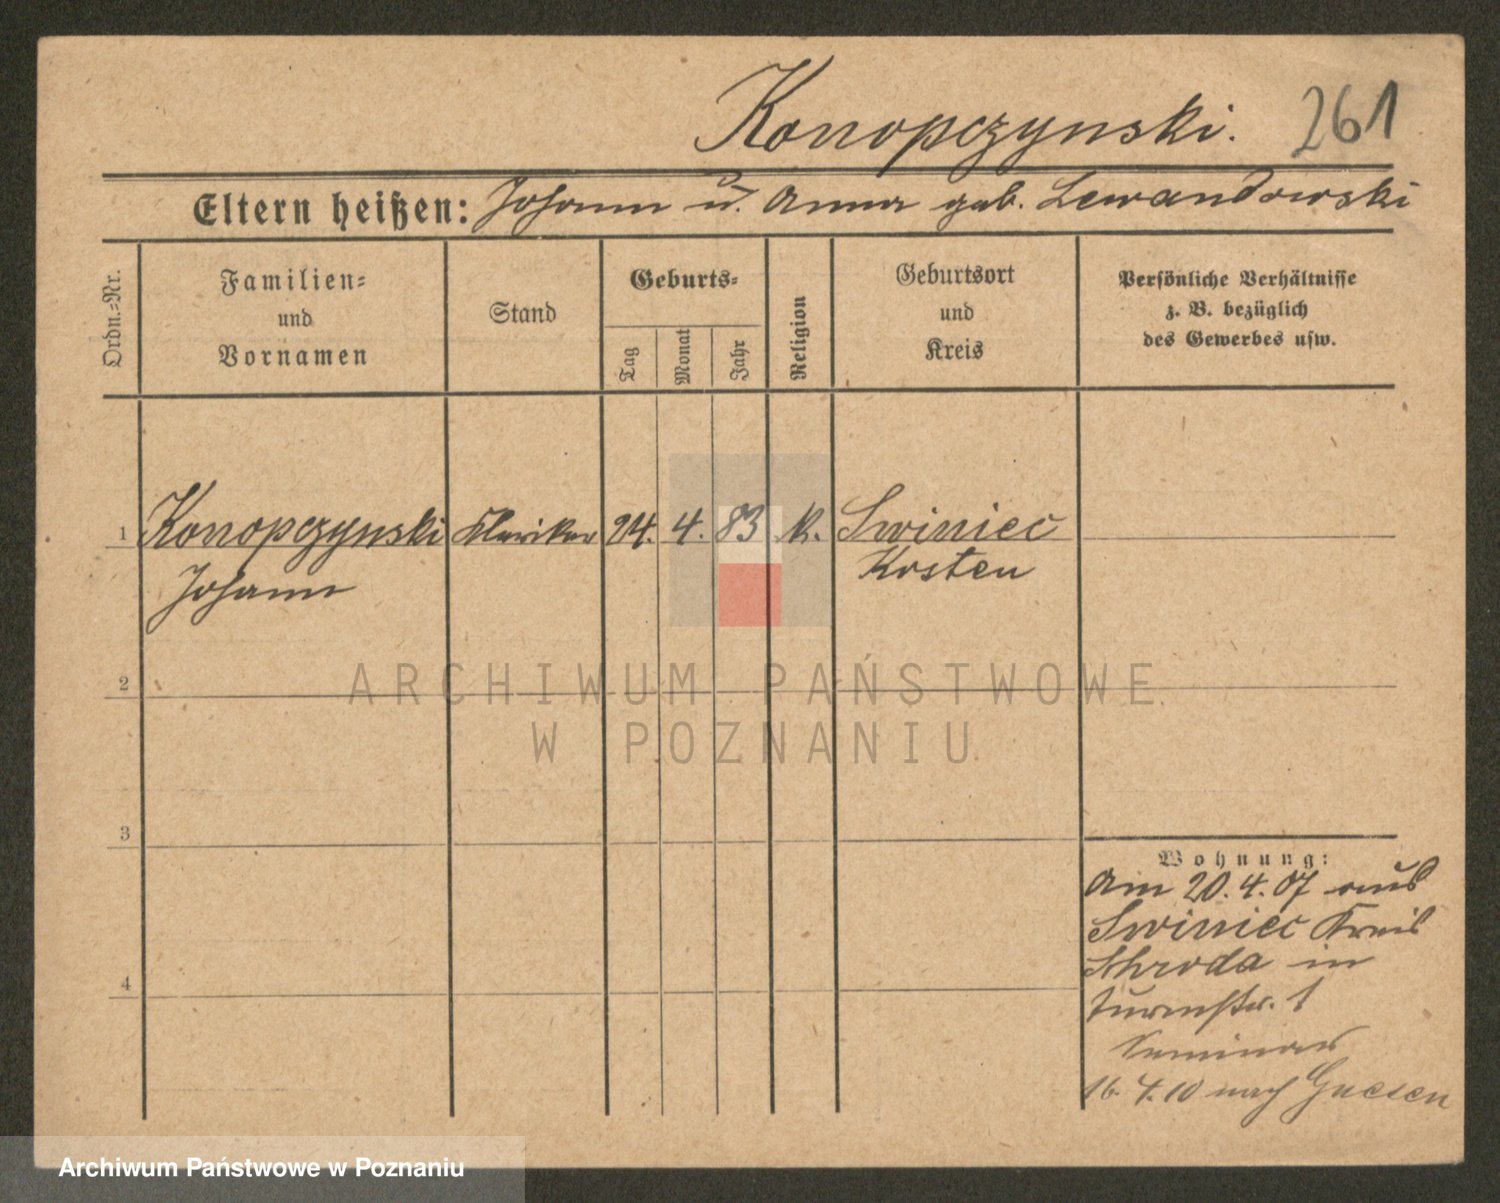 Konopczynski. 261
Eltern heißen: Johann u. Anna geb. Lewandowski
Ordn.=Nr.
Familien=
und
Vornamen
Stand
Geburts=
Tag
Monat
Jahr
Religion
Geburtsort
und
Kreis
Persönliche Verhältnisse
z. B. bezüglich
des Gewerbes usw.
1 Konopczynski Kleriker 24. 4. 83 K. Swiniec
Johann Kosten
2
3
4
Wohnung:
Am 20.4.07 aus
Swiniec Kreis
Schroda in
Turmstr. 1
Seminar
16. 4. 10 nach Gnesen
ARCHIWUM PAŃSTWOWE
W POZNANIU
Archiwum Państwowe w Poznaniu